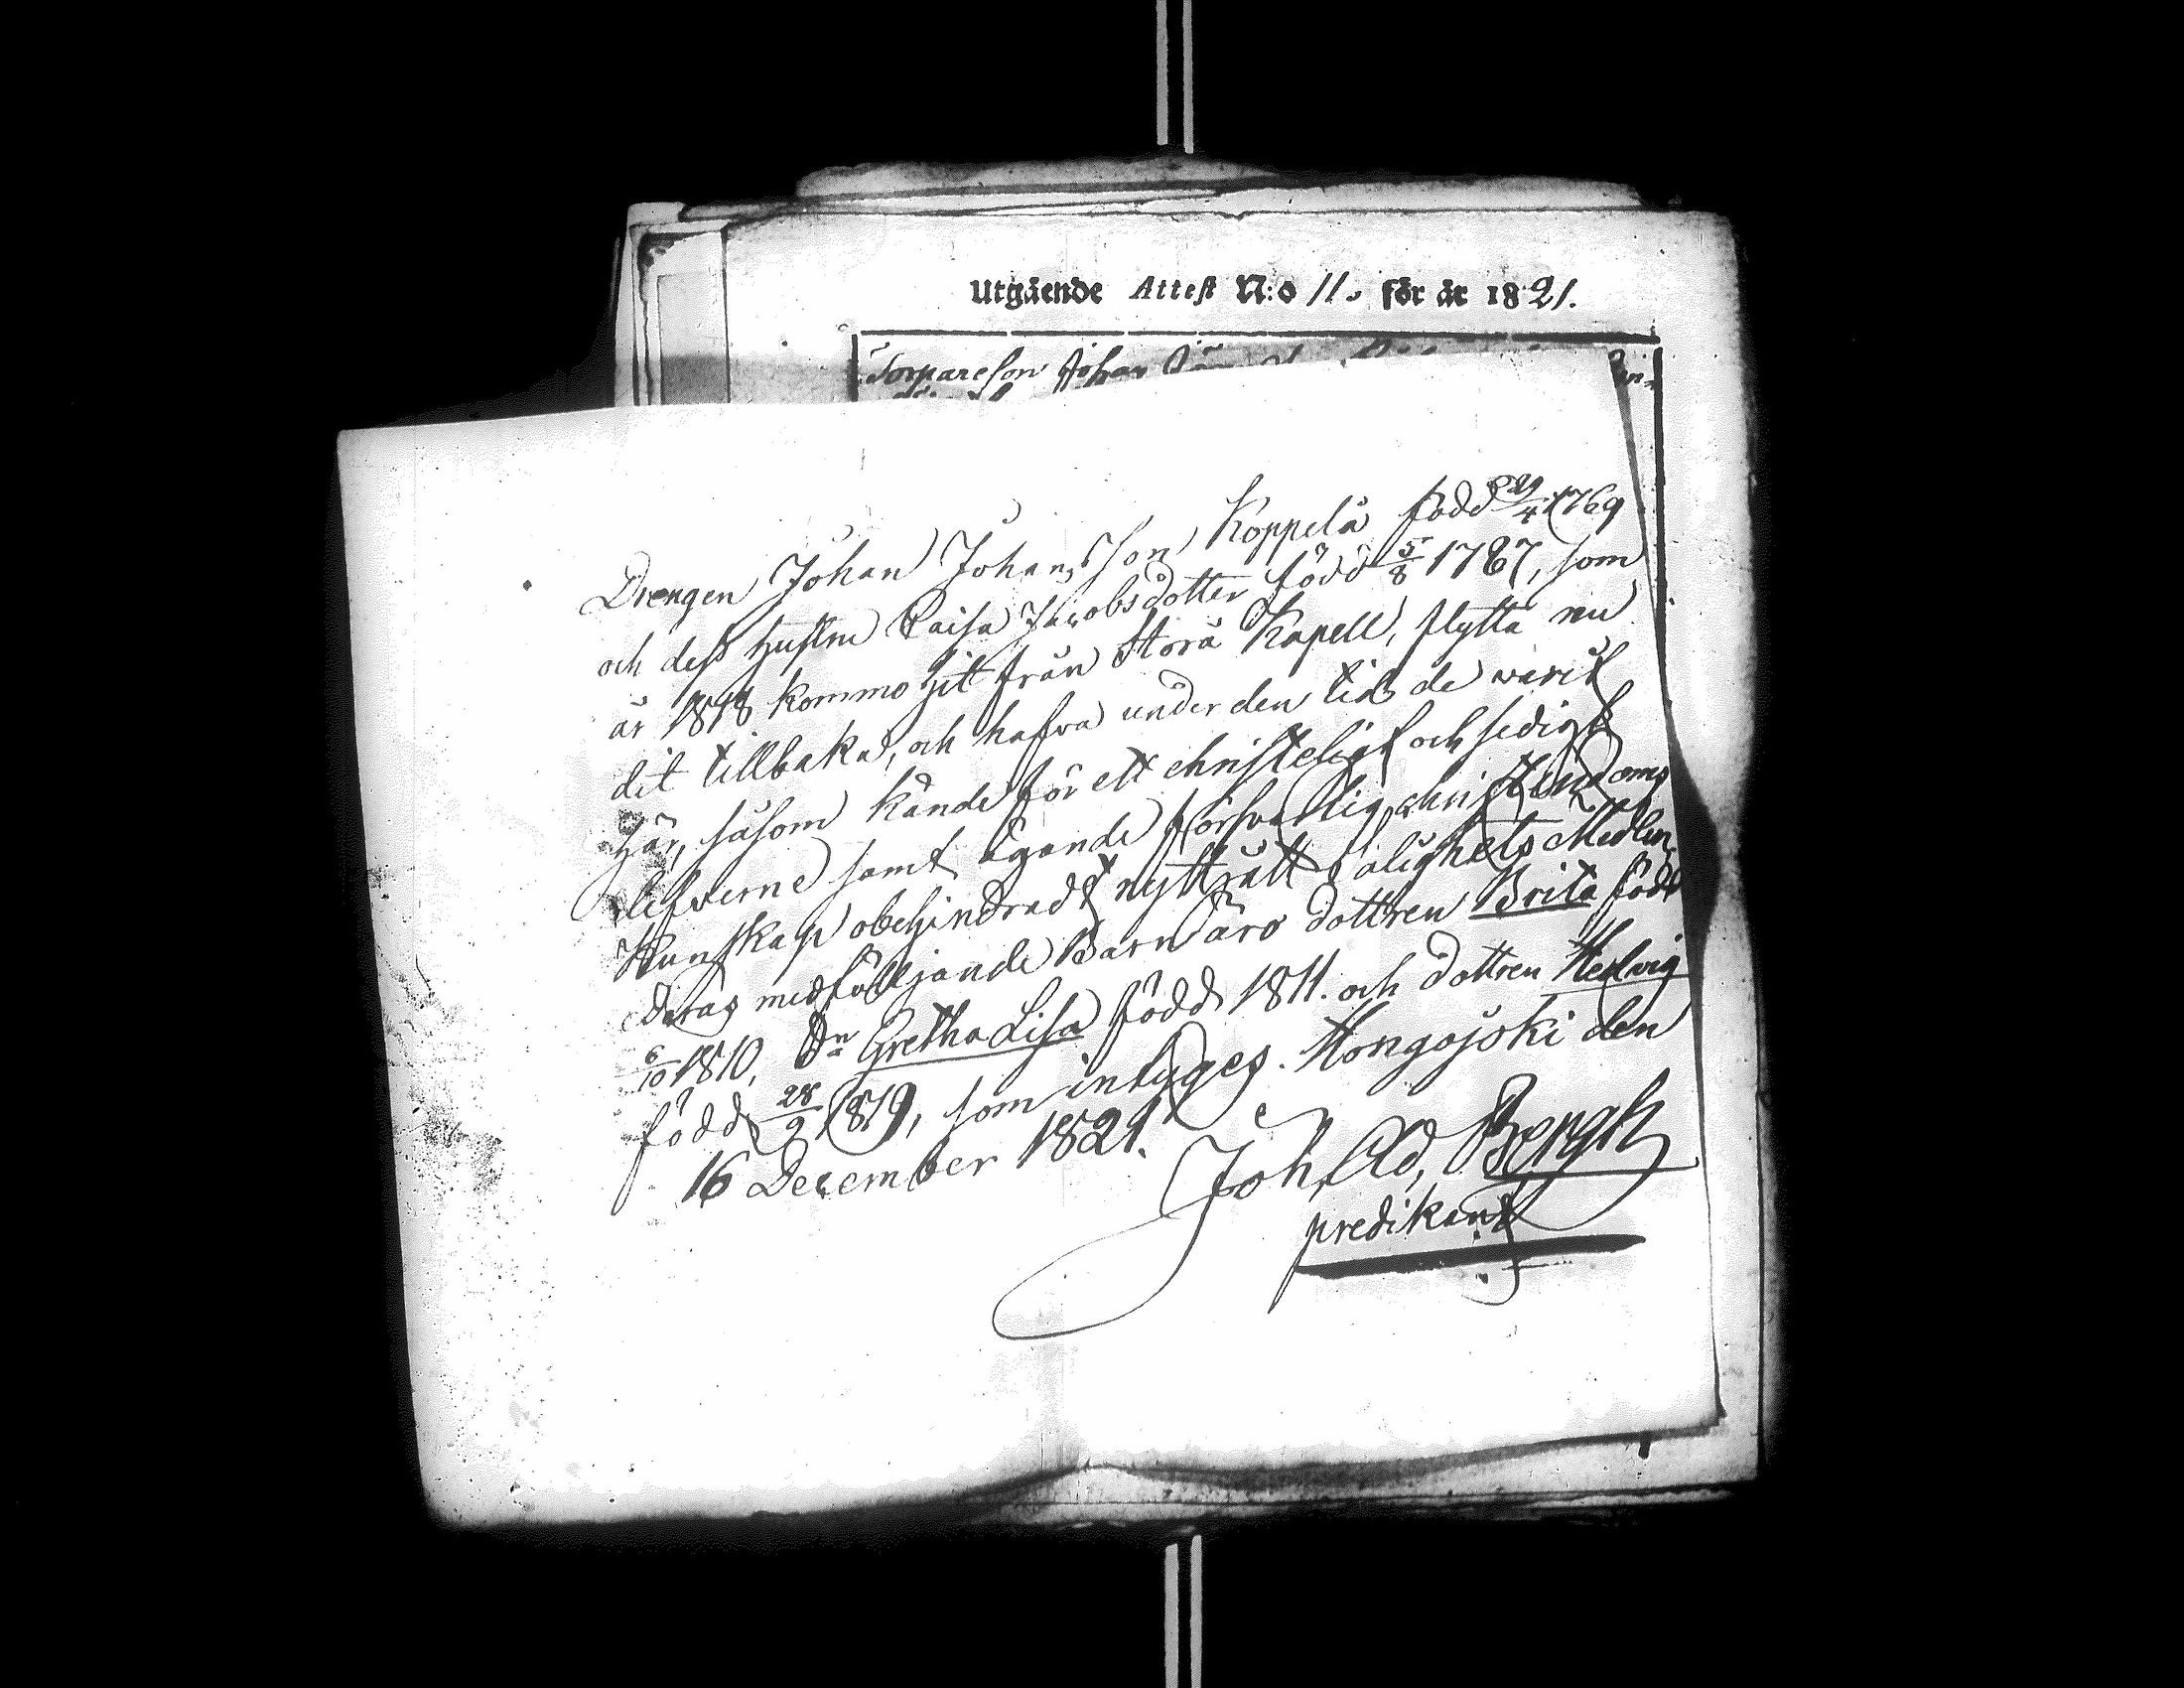 Utgående Attest N:o 11. för år 1821.
Torpareson Johan
Drengen Johan Johansson Koppelå född 29/4 1769
och dess Hustru Caisa Jacobsdotter född 5/8 1787, som
år 1818 kommo hit från Storå Kapell, flytta nu
dit tillbaka, och hafva under den tid de warit
här, såsom kände för ett christeligt och sedigt
lefwerne samt ägande försvarlig christendoms
Kunskap obehindradt nyttjatt salighets Medlen,
deras medföljande Barn äro dottren Brita född
6/10 1810, Dn Gretha Lisa född 1811. och dottren Hedvig
född 28/9 1819, som intyges. Hongojoki den
16 December 1821.
Joh. Ad. Bergh
predikant